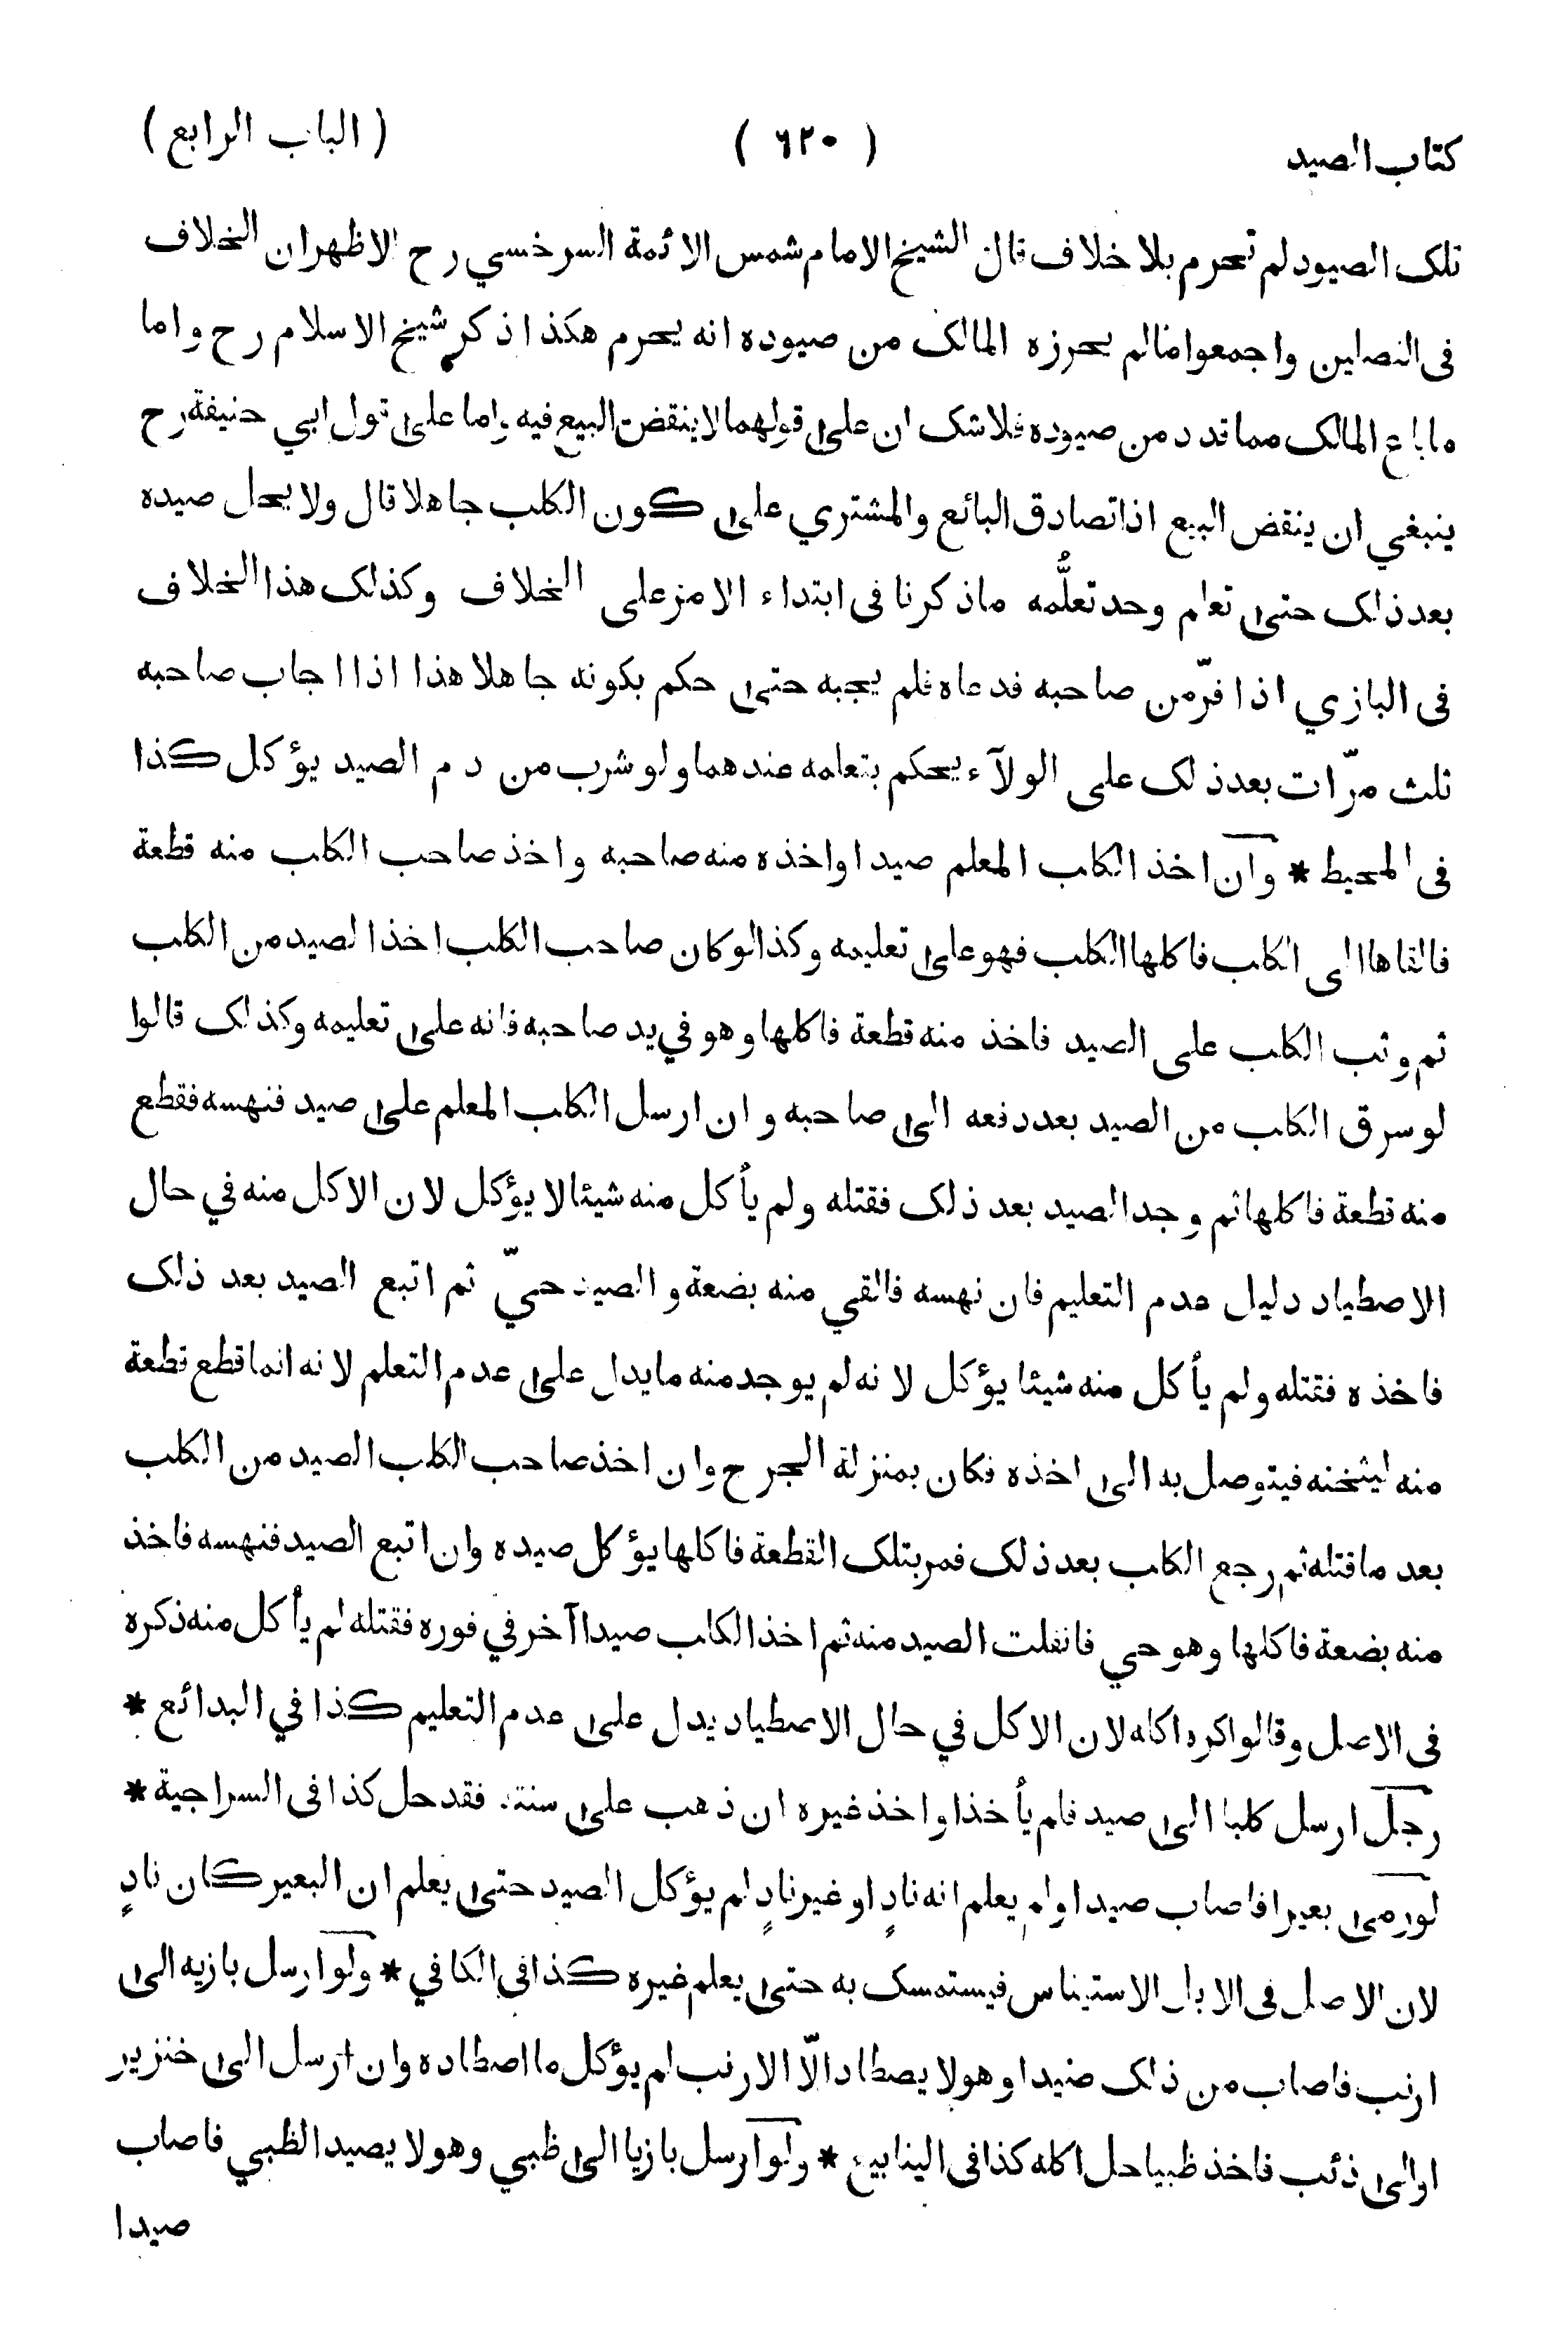 كتاب الصيد ( ٦٢٠ ) ( الباب الرابع )
تلك الصيود لم تحرم بلا خلاف قال الشيخ الامام شمس الائمة السرخسي رح الاظهر ان الخلاف
فى الفصلين واجمعوا فما لم يحرزه المالك من صيوده انه يحرم هكذا ذكر شيخ الاسلام رح واما
ما باع المالك مما قدد من صيوده فلا شك ان على قولهما لا ينقض البيع فيه واما على قول ابي حنيفة رح
ينبغي ان ينقض البيع اذا تصادق البائع والمشتري على كون الكلب جاهلا قال ولا يحل صيده
بعد ذلك حتى تعلم وحد تعلُّمه ما ذكرنا فى ابتداء الامر على الخلاف وكذلك هذا الخلاف
فى البازي اذا فرّ من صاحبه فدعاه فلم يجبه حتى حكم بكونه جاهلا هذا اذا اجاب صاحبه
ثلث مرّات بعد ذلك على الولآء يحكم بتعلمه عندهما ولو شرب من دم الصيد يؤكل كذا
فى المحيط * وان اخذ الكلب المعلم صيدا واخذه منه صاحبه واخذ صاحب الكلب منه قطعة
فالقاها الى الكلب فاكلها الكلب فهو على تعليمه وكذا لو كان صاحب الكلب اخذ الصيد من الكلب
ثم وثب الكلب على الصيد فاخذ منه قطعة فاكلها وهو في يد صاحبه فانه على تعليمه وكذلك قالوا
لو سرق الكلب من الصيد بعد دفعه الى صاحبه وان ارسل الكلب المعلم على صيد فنهسه فقطع
منه قطعة فاكلها ثم وجد الصيد بعد ذلك فقتله ولم يأكل منه شيئا لا يؤكل لان الاكل منه في حال
الاصطياد دليل عدم التعليم فان نهسه فالقي منه بضعة و الصيد حيّ ثم اتبع الصيد بعد ذلك
فاخذه فقتله ولم يأكل منه شيئا يؤكل لانه لم يوجد منه ما يدل على عدم التعلم لانه انما قطع قطعة
منه ليثخنه فيتوصل به الى اخذه فكان بمنزلة الجرح وان اخذ صاحب الكلب الصيد من الكلب
بعد ما قتله ثم رجع الكلب بعد ذلك فمر بتلك القطعة فاكلها يؤكل صيده وان اتبع الصيد فنهسه فاخذ
منه بضعة فاكلها وهو حي فانفلت الصيد منه ثم اخذ الكلب صيدا آخر في فوره فقتله لم يأكل منه ذكره
فى الاصل وقالوا اكره اكله لان الاكل في حال الاصطياد يدل على عدم التعليم كذا في البدائع *
رجل ارسل كلبا الى صيد فلم يأخذ واخذ غيره ان ذهب على سننه فقد حل كذا فى السراجية *
لو رمى بعيرا فاصاب صيدا ولم يعلم انه نادٍ او غير نادٍ لم يؤكل الصيد حتى يعلم ان البعير كان نادٍ
لان الاصل فى الابل الاستيناس فيستمسك به حتى يعلم غيره كذا فى الكافي * ولو ارسل بازيه الى
ارنب فاصاب من ذلك صيدا وهو لا يصطاد الّا الارنب لم يؤكل ما اصطاده وان ارسل الى خنزير
او الى ذئب فاخذ ظبيا حل اكله كذا فى الينابيع * ولو ارسل بازيا الى ظبي وهو لا يصيد الظبي فاصاب
صيدا